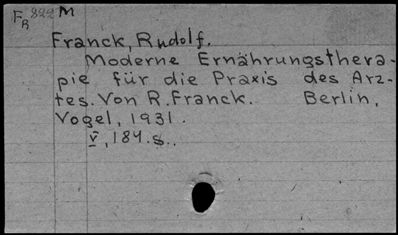 FR 822 M
Franck, Rudolf.
Moderne Ernährungsthera-
pie für die Praxis des Arz-
tes. Von R. Franck. Berlin,
Vogel, 1931.
V, 184. S..